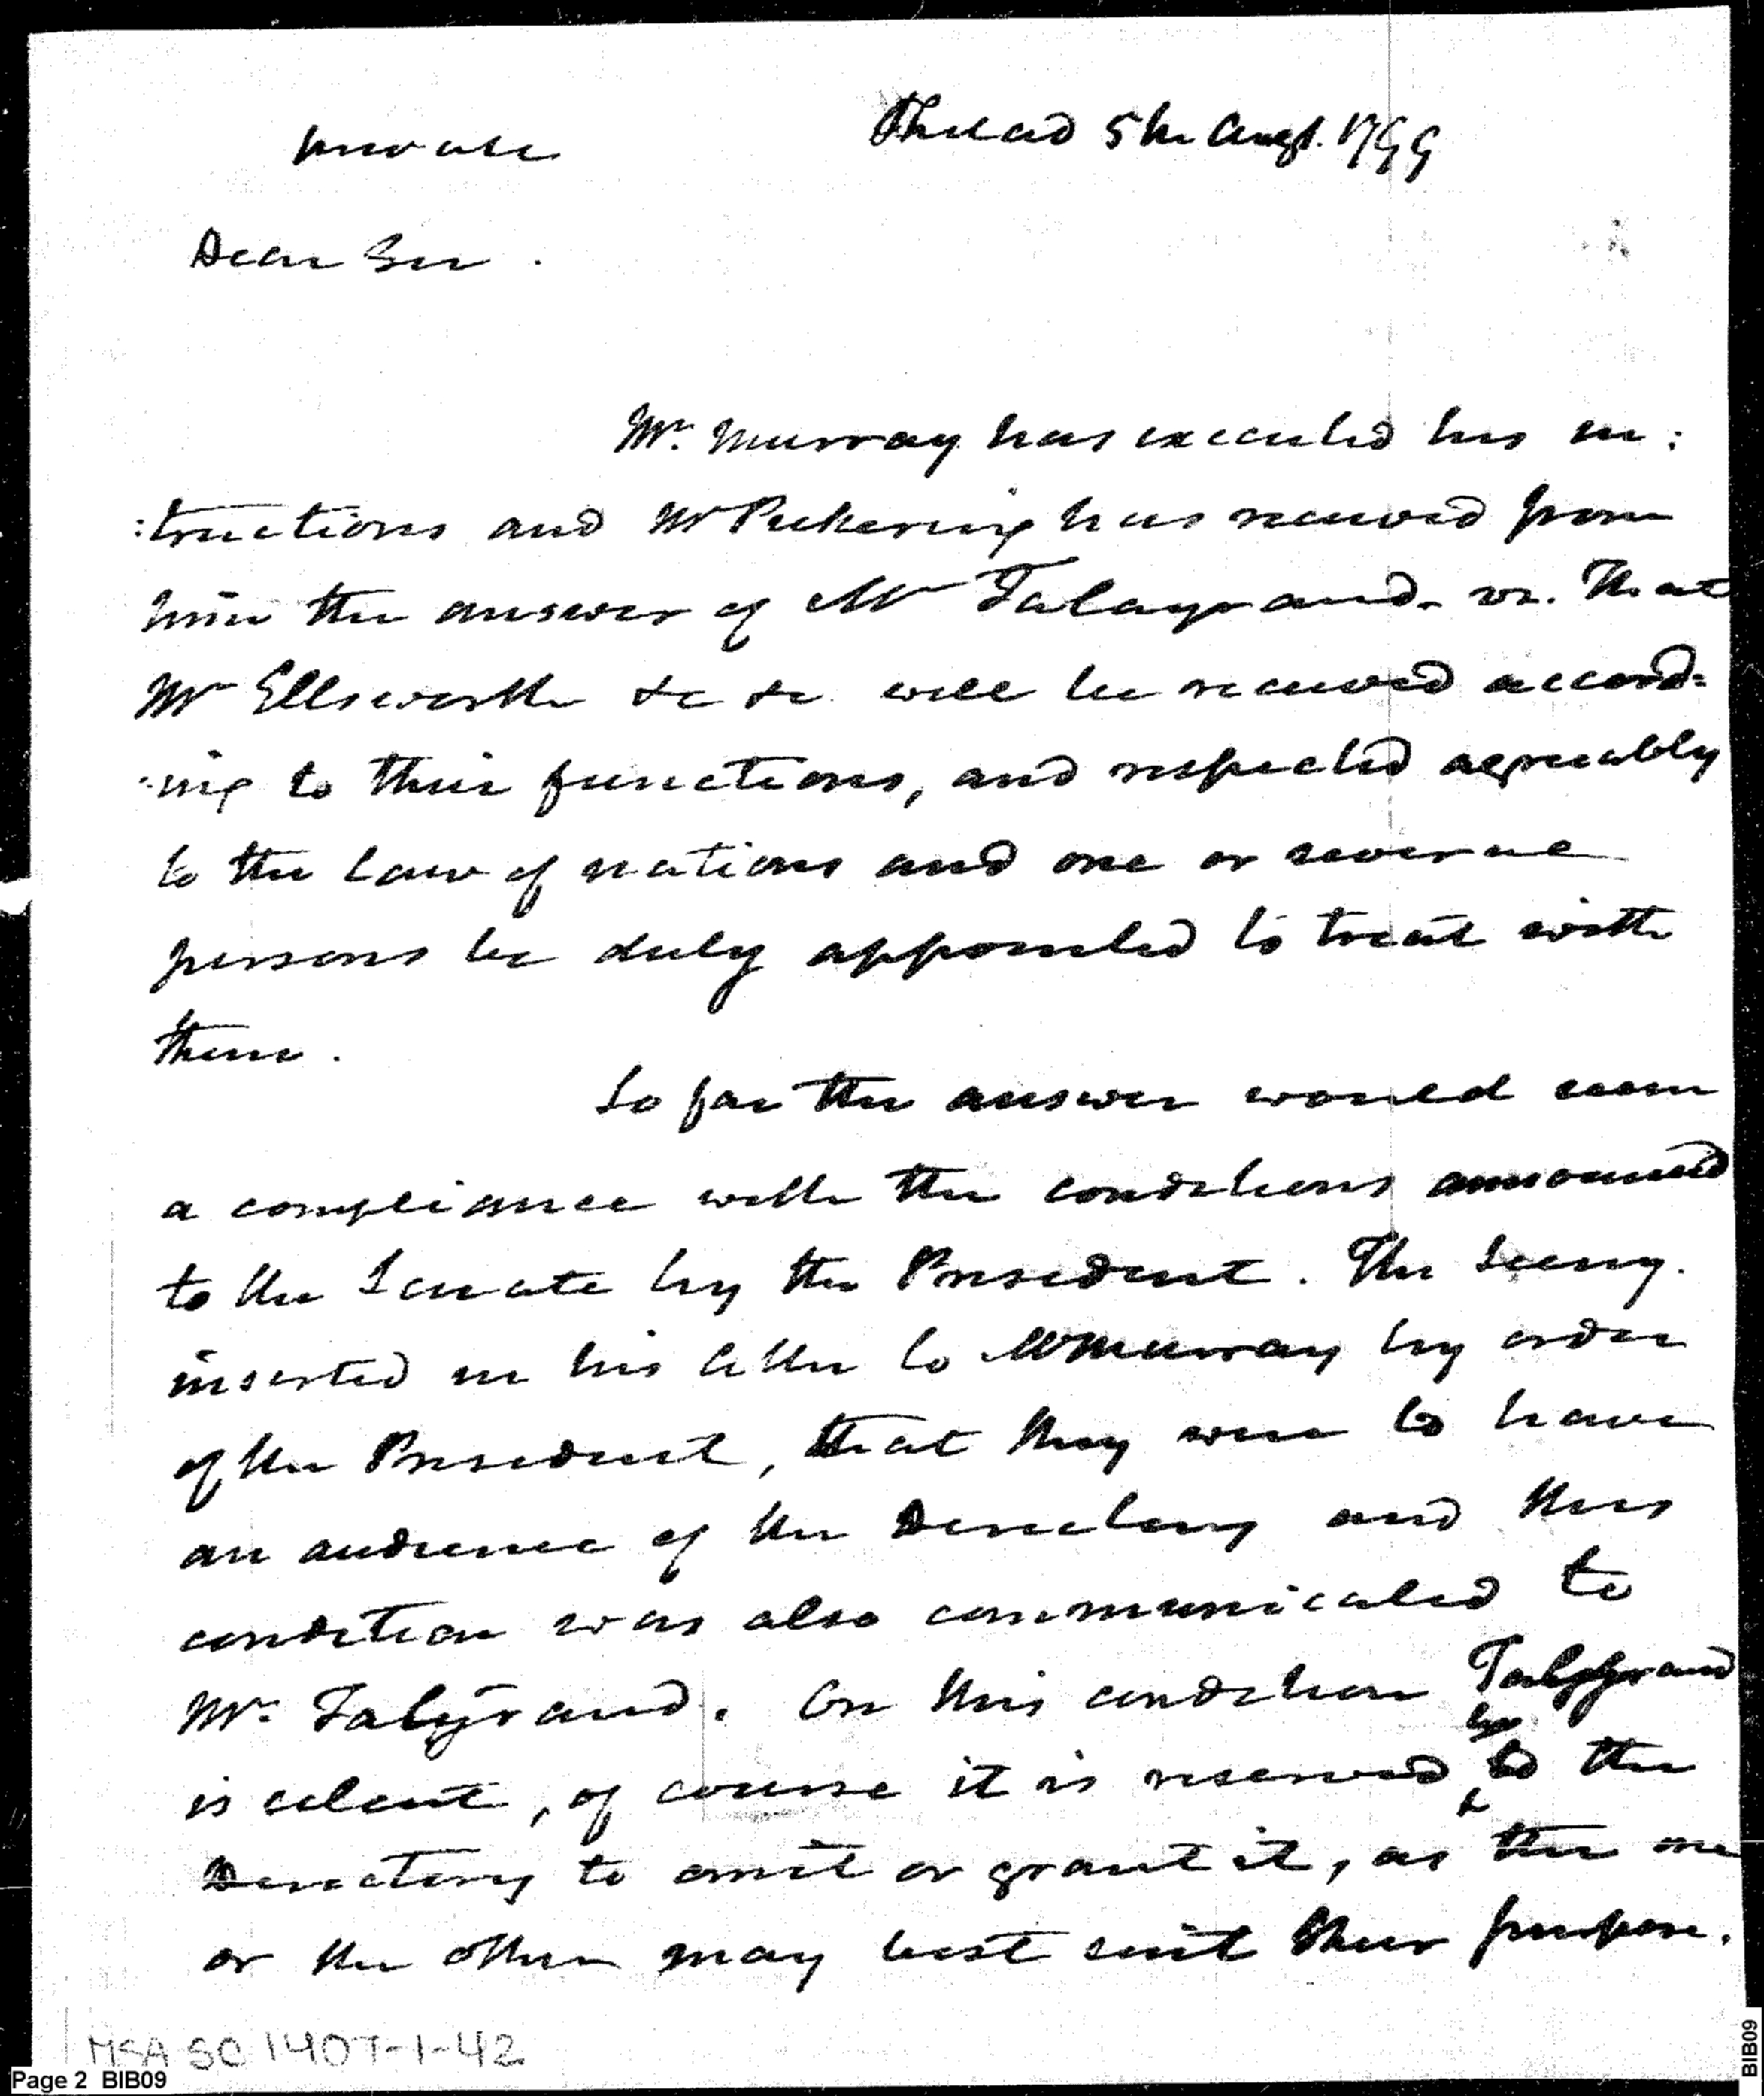 private
Philad 5th Augt. 1799
Dear Sir.
Mr. Murray has executed his in:
:structions and Mr Pickering has received from
him the answer of Mr Talayrand. vz. That
Mr Ellsworth &c &c. will be received accord-
-ing to their functions, and respected agreeably
to the law of nations and one or several
persons be duly appointed to treat with
them.
So far the answer would seem
a compliance with the conditions announced
to the Senate by the President. The Secy.
inserted in his letter to Mr Murray by order
of the President, that they were to have
an audience of the Directory and this
condition was also communicated to
Mr. Talyrand. On this condition Talyrand
is silent, of course it is reserved by to the
Directory to omit or grant it, as the one
or the other may best suit their purpose.
MSA SC 1407-1-42
Page 2 BIB09
BIB09